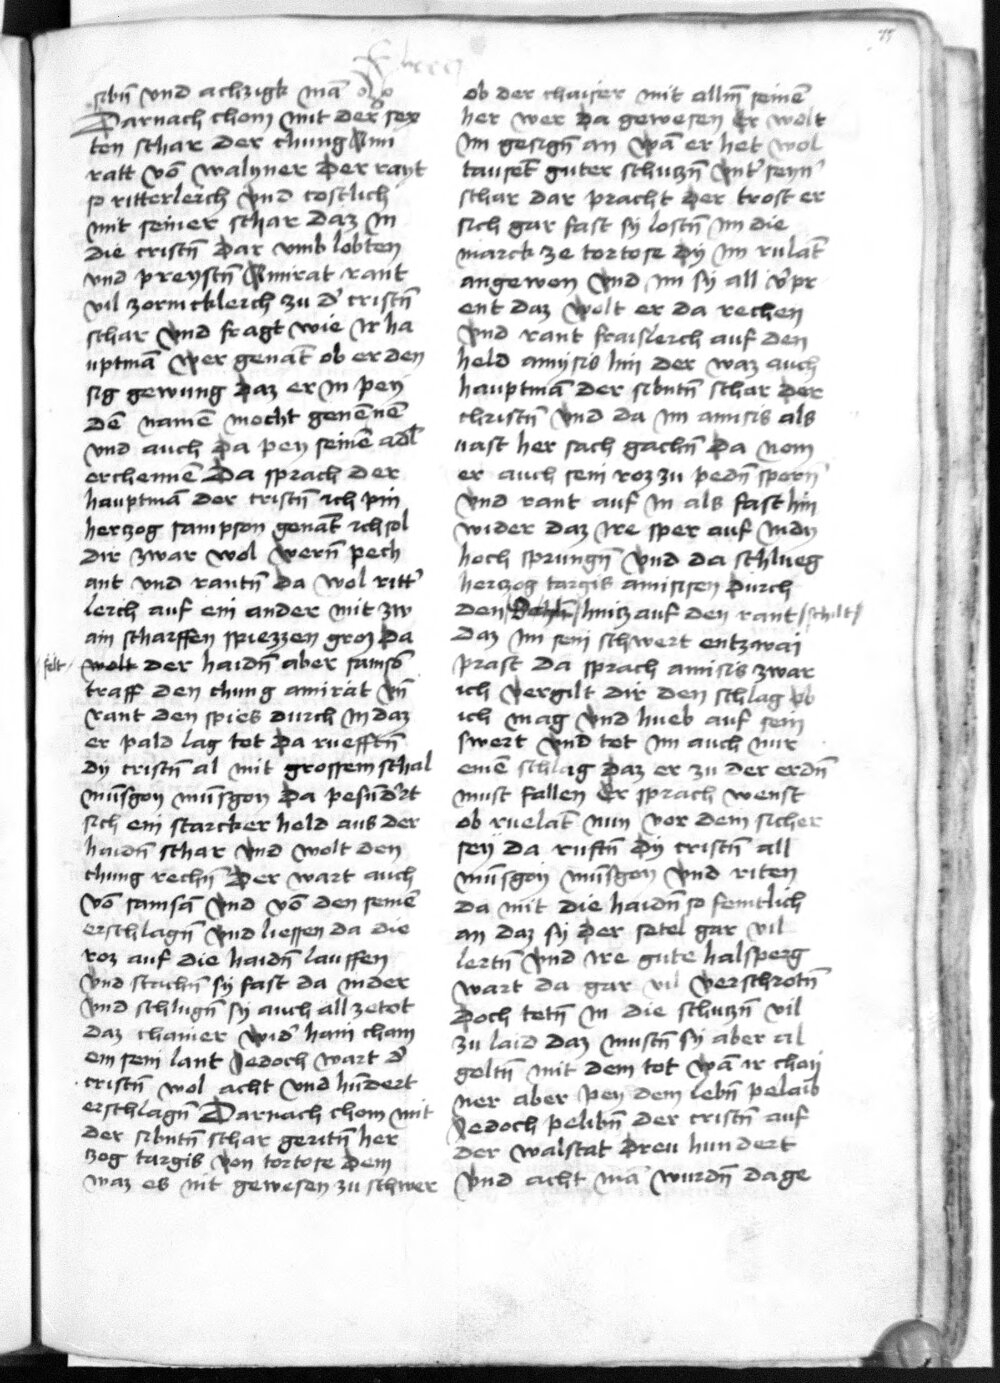 sibñ vnd achzigk mā
Darnach chom mit der sex
ten schar der chung Ami
ratt võ walyner Der rayt
so ritterlerch vnd costlich
mit seiner schar daz In
die cristñ Dar vmb lobten
vnd preystñ Amirat rant
vil zornicklerch zu d' cristñ
schar vnd fragt wie Ir ha
uptmā wer genāt ob er den
sig gewung Daz er In pey
dē namē mocht genēnē
vnd auch Da pey seinē adl
erchennē Da sprach der
hauptmā der cristñ ich pin
herzog sampson genāt ich sol
dir zwar wol wern̄ pech
ant vnd rantñ da wol ritt'
lerch auf ein ander mit zw
ain scharffen spiezzen groz Da
felt wolt der haidñ aber samsō
traff den chung amirat vñ
rant den spies durch In daz
er pald lag tot Da rueftñ
dy cristñ al mit grossem schal
mūsgoy mūsgoy Da pesūd'rt
sich ein starcker held aus der
haidñ schar vnd wolt den
chung rechñ Der wart auch
võ samsā vnd võ den seinē
erschlagñ vnd liessen da die
roz auf die haidñ lauffen
vnd stachñ sy fast da nider
vnd schlugñ sy auch all ze tot
daz chainer wid' haim cham
em sein lant Jedoch wart d'
cristñ wol acht vnd hūdert
erschlagñ Darnach chom mit
der sibntñ schar geritñ her
zog targis von tortose Dem
waz es nit gewesen zu schwer
ob der chaiser mit allm̄ seinē
her wer Da gewesen Er wolt
Im gesign̄ an wā er het wol
tausēt guter schutzñ vnt' seyn'
schar dar pracht Der trost er
sich gar fast sy lostñ Im die
marck ze tortose Dy Im rulāt
angewon vnd Im sy all v'pr
ent daz wolt er da rechen
vnd rant fraislerch auf den
held amisis hin der waz auch
hauptmā der sibntñ schar Der
christñ vnd da Im amisis als
vast her sach gachñ Da nom
er auch sein roz zu pedñ sporñ
vnd rant auf In als fast hin
wider daz Ire sper auf In dy
hoch sprungñ vnd da schlueg
herzog targis amisisen Durch
den hintz auf den rant schilt
Daz Im sein schwert entzwai
prast Da sprach amisis zwar
ich vergilt dir den schlag ob
ich mag vnd hueb auf sein
swert vnd tot Im auch nur
einē schlag Daz er zu der erdñ
must fallen Er sprach wenst
ob ruelāt nun vor dem sicher
sey da ruftñ Dy cristñ all
mūsgoy mūsgoy vnd riten
da mit die haidñ so feintlich
an daz sy Der sätel gar vil
lertñ vnd Ire gute halsperg
wart da gar vil verschrotñ
Doch tetñ In die schutzñ vil
zu laid Daz mustñ sy aber al
geltñ mit dem tot wā Ir chay
ner aber pey dem lebñ pelaib
Jedoch pelibñ der cristñ auf
der walstat Dreu hundert
vnd acht mā wurdñ da ge